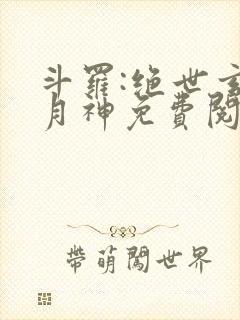 斗羅:绝世玄
月神免費閱
帶萌闖世界